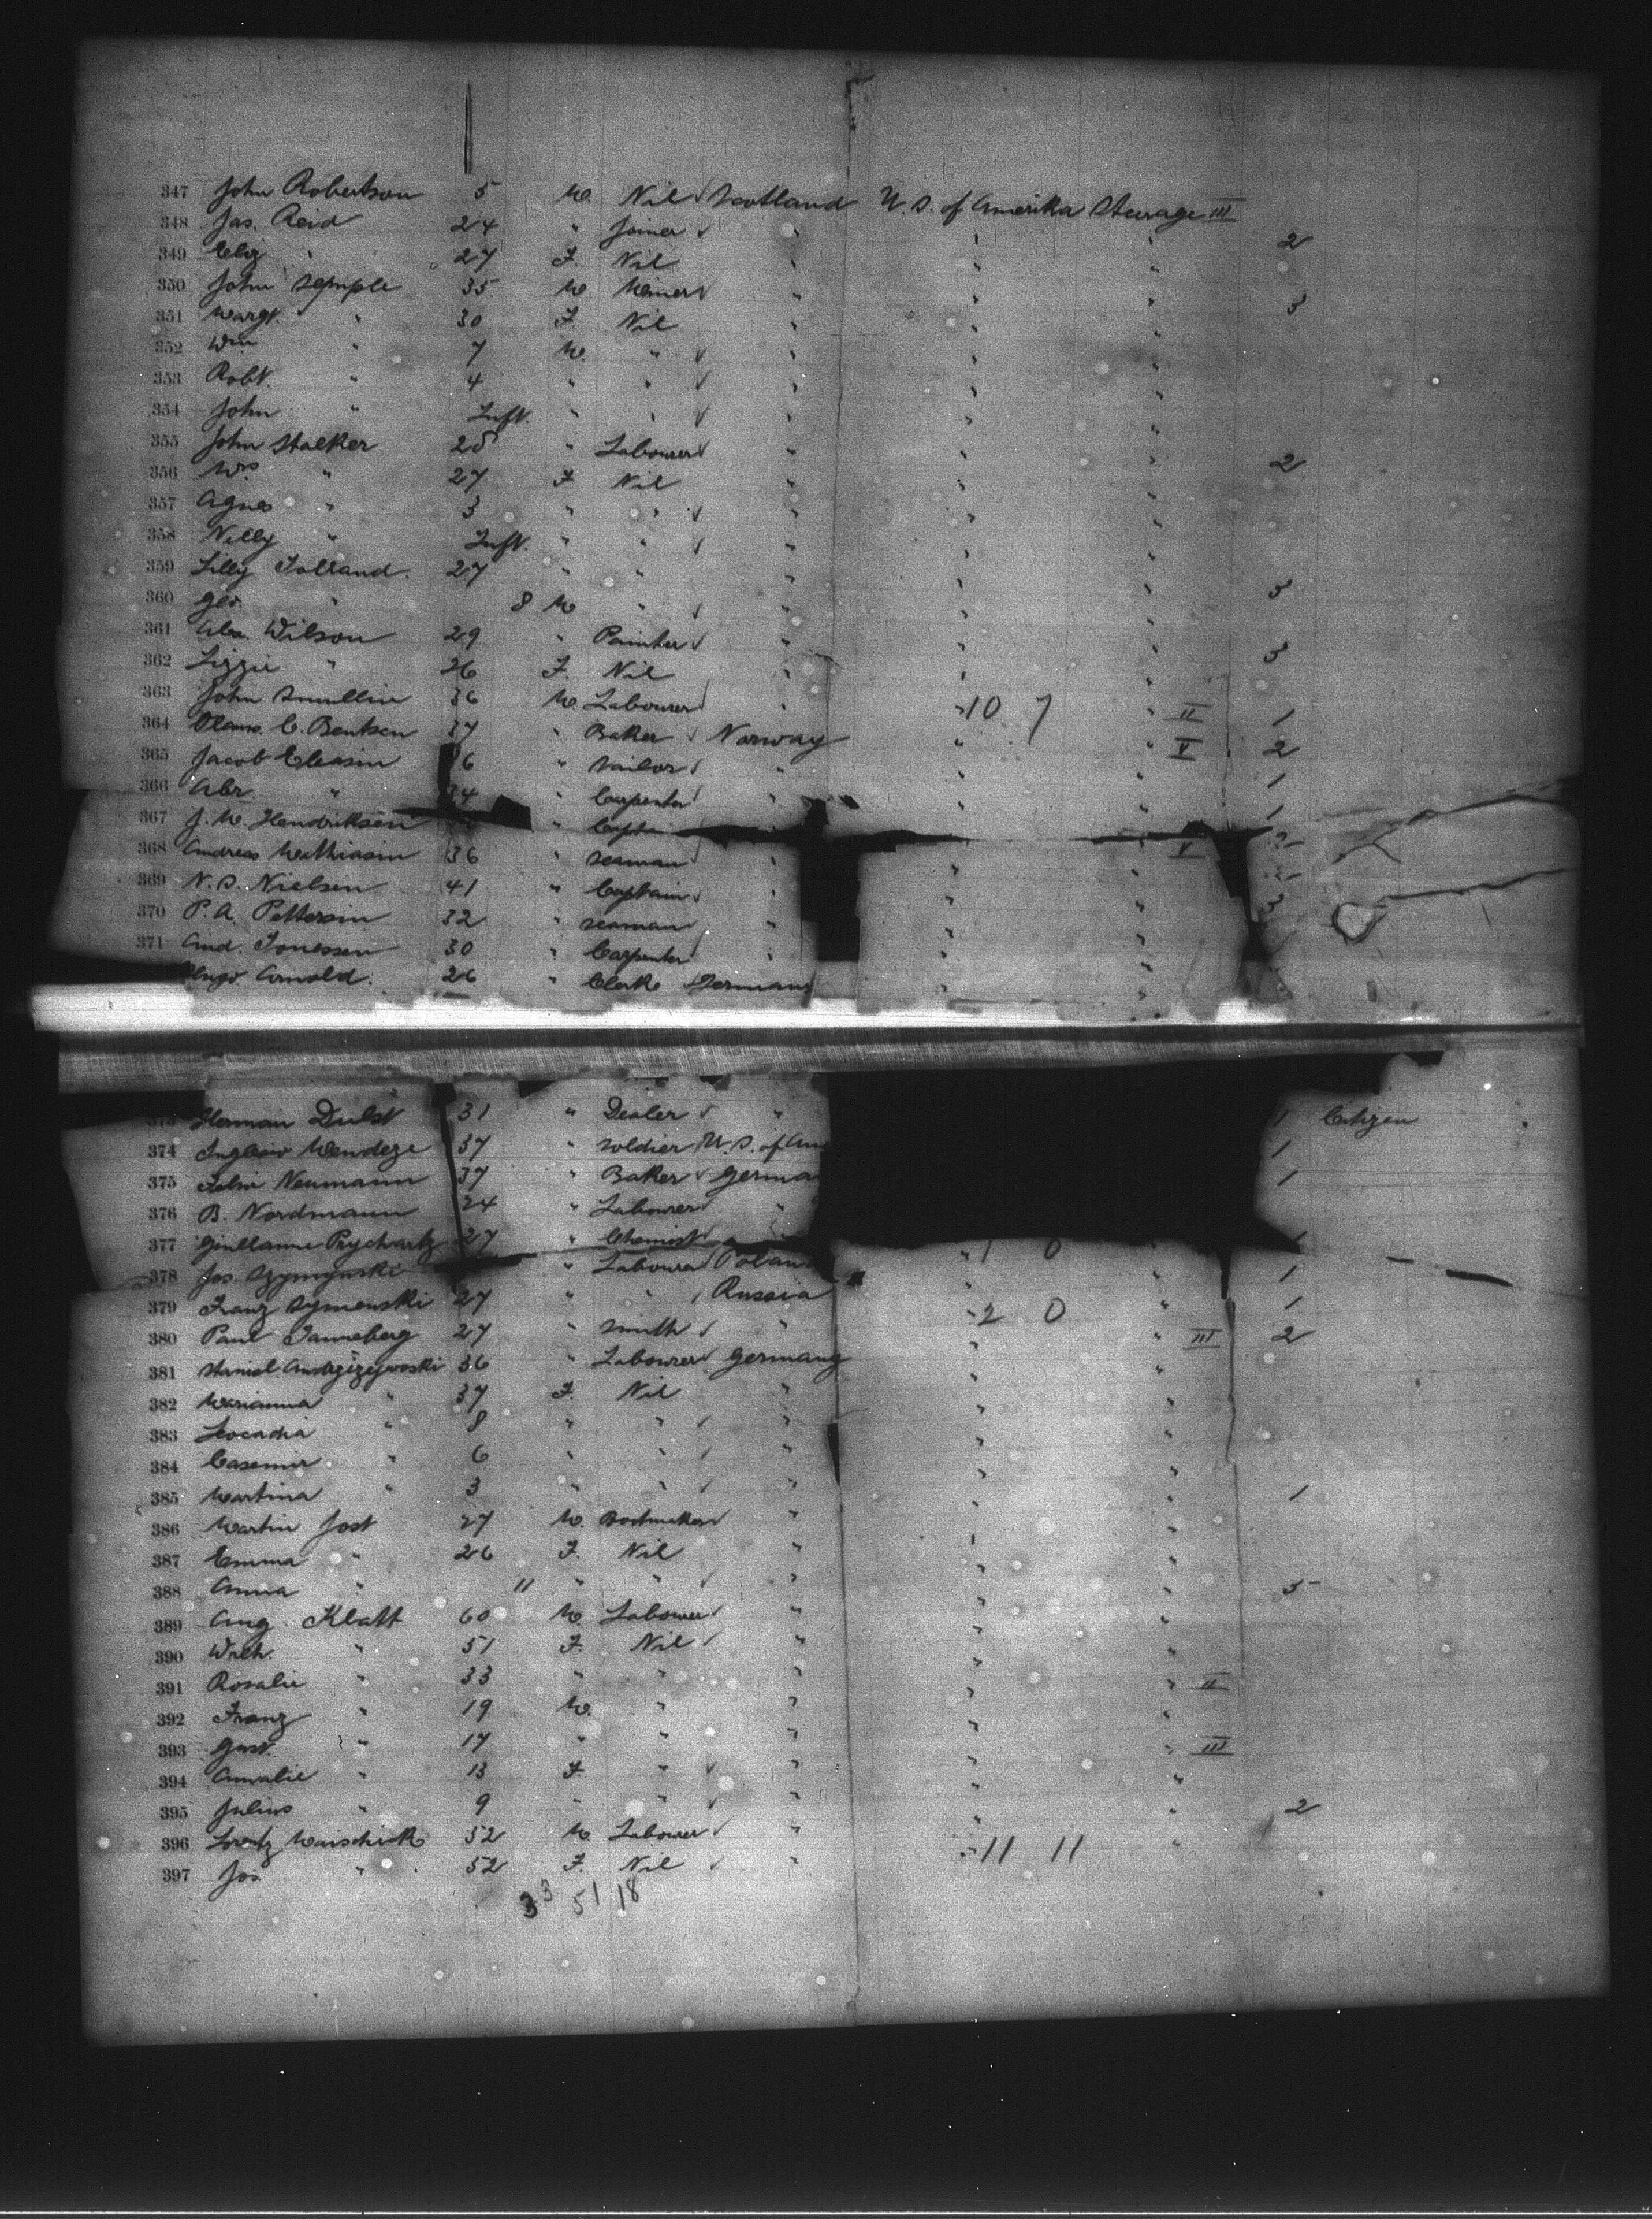 347 John Robertson 5 M. Nil Scotland U.S. of Amerika Steerage III
348 Jas. Reid 24 " Joiner " " " 2
349 Eliz " 27 F. Nil " " "
350 John Semple 35 M Miner " " " 3
351 Margt. " 30 F. Nil " " "
352 Wm " 7 M. " " " "
353 Robt. " 4 " " " " "
354 John " Inft. " " " " "
355 John Stalker 28 " Labourer " " " 2
356 Mrs " 27 F Nil " " "
357 Agnes " 3 " " " " "
358 Nelly " Inft. " " " " "
359 Lilly Tolland. 27 " " " " " 3
360 Geo. " 8 M " " " "
361 Alex. Wilson 29 " Painter " " " 3
362 Lizzie " 26 F. Nil " " "
363 John Smullin 36 M. Labourer " " 10 7 " II 1
364 C. Bentsen 37 " Baker Norway " " V 2
365 Jacob Eleasin 6 " Sailor " " " 1
366 Abr. " 34 " Carpenter " " " 1
367 J. M. Hendriksen "
368 Andreas Mathiasin 36 " Seaman " " V
369 N. S. Nielsen 41 " Captain " " " 3
370 P. A. Pettersin 32 " Seaman " " "
371 And. Tonessen 30 " Carpenter " " "
Hugo Arnold. 26 " Clerk German " "
373 Herman 31 " Dealer " 1 Citizen
374 37 " Soldier U.S. of Am 1
375 Neumann 37 " Baker Germa 1
376 B. Nordmann 24 " Labourer "
377 Guillaume 27 " Chemist 1 0
378 Jos. " Labourer Polan " 1
379 Franz Symanski 27 " " Russia " 2 0 " 1
380 Paul Tanneberg 27 " Smith " " III 2
381 36 " Labourer Germany " "
382 Marianna " 37 F. Nil " " "
383 Leocadia " 8 " " " " "
384 Casemir " 6 " " " " "
385 Martina " 3 " " " " " 1
386 Martin Jost 27 M. Bootmaker " " "
387 Emma " 26 F. Nil " " "
388 Anna " 11 " " " " " 5
389 Aug. Klatt 60 M. Labourer " " "
390 Wilh. " 51 F. Nil " " "
391 Rosalie " 33 " " " " " II
392 Franz " 19 M. " " " "
393 Gust. " 17 " " " " " III
394 Amalie " 13 F. " " " "
395 Julius " 9 " " " " " 2
396 Lorentz 52 M Labourer " " 11 11 "
397 Jos " 52 F. Nil "
33 51 18